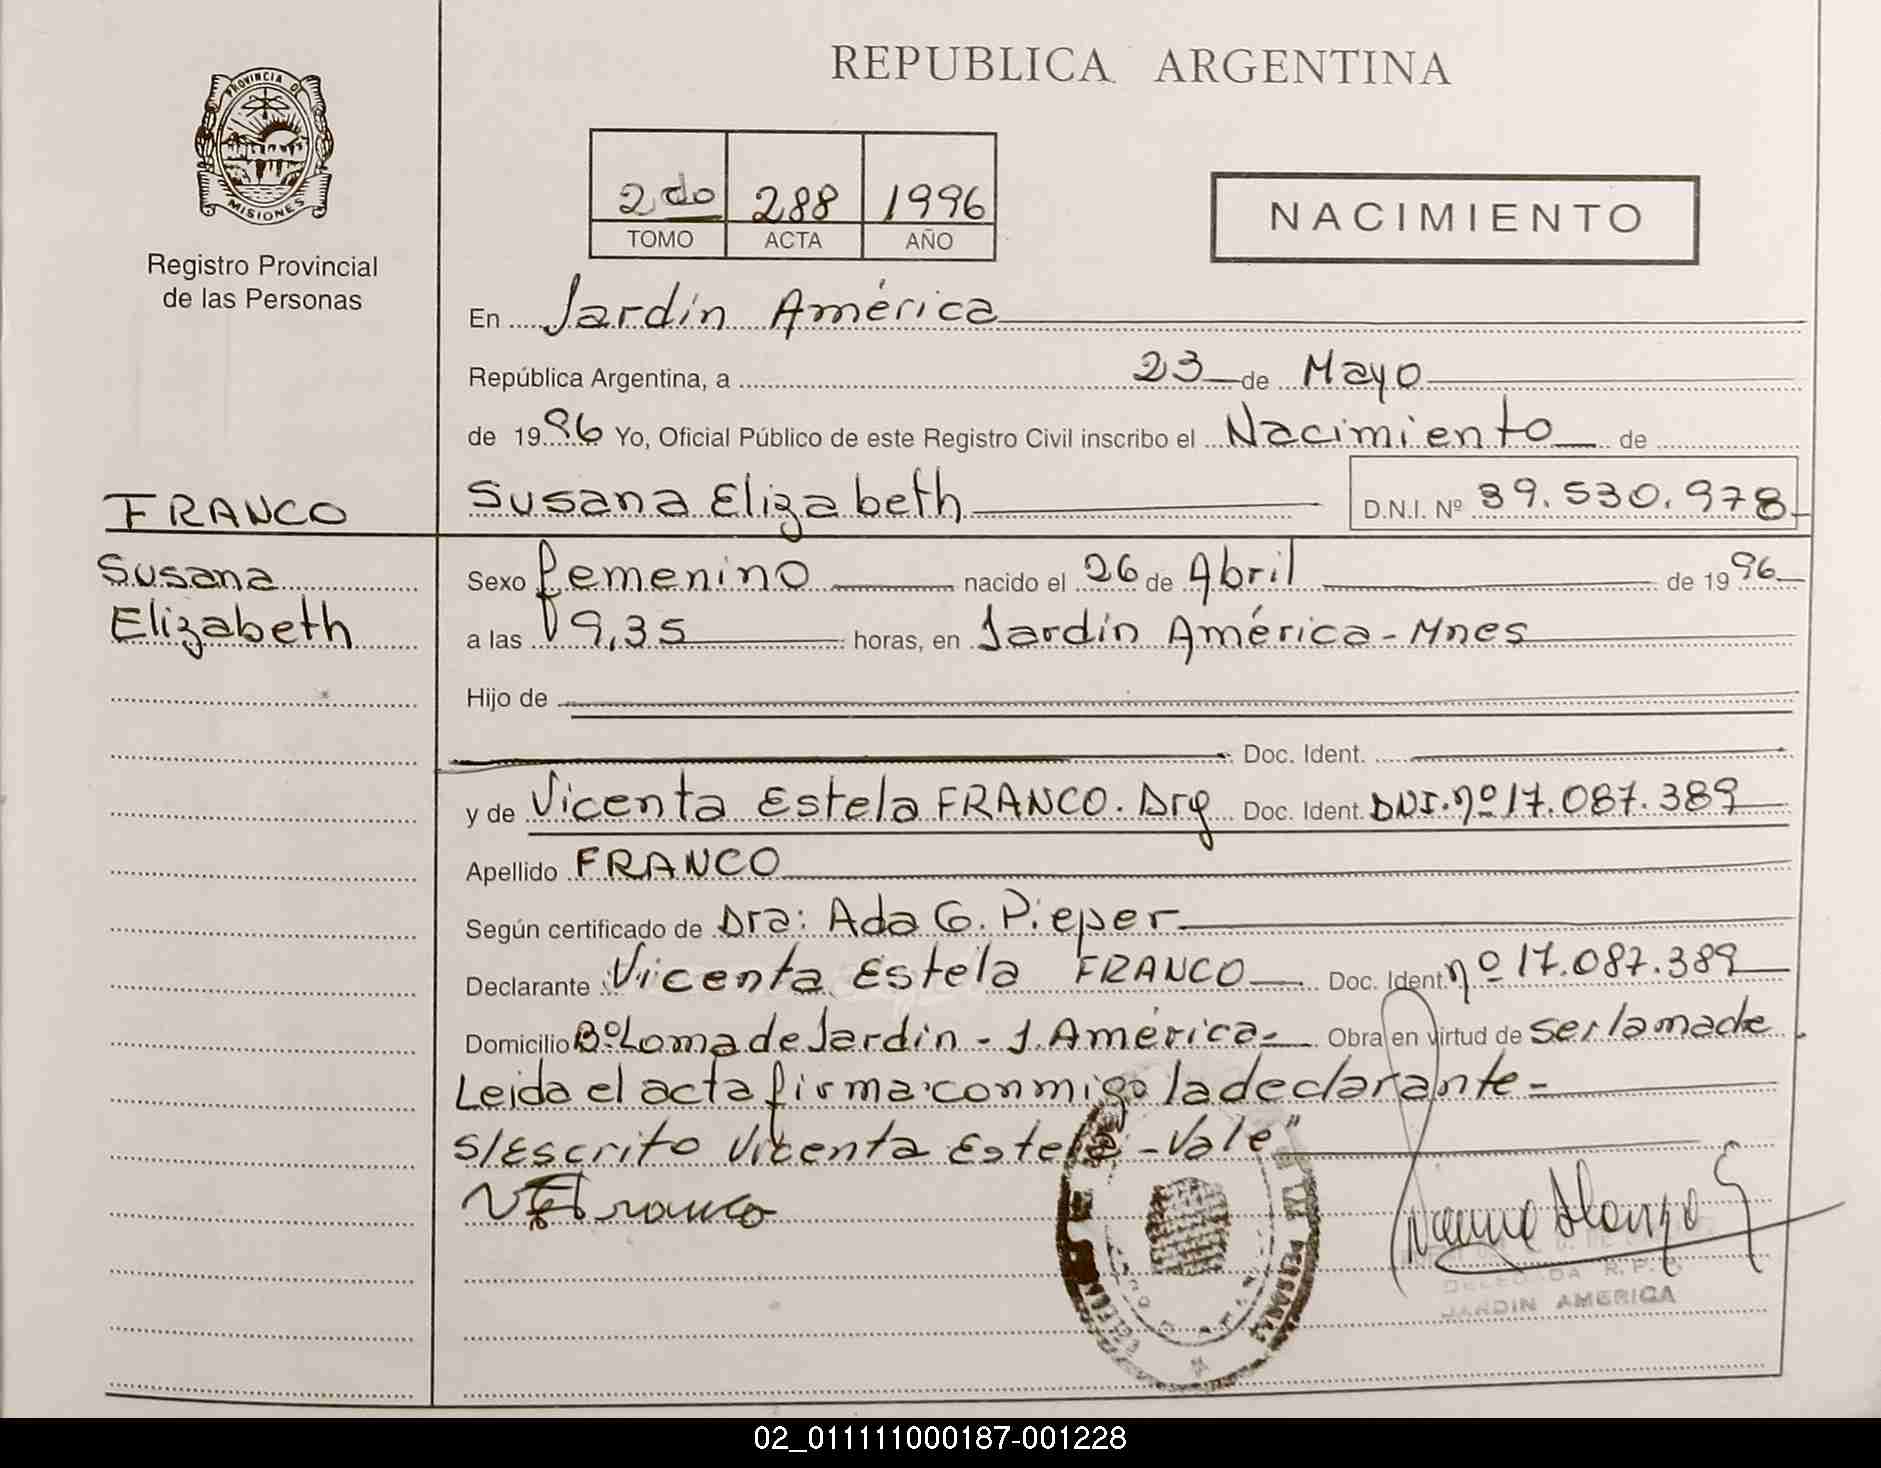 PROVINCIA DE
MISIONES
Registro Provincial
de las Personas
FRANCO
Susana
Elizabeth
REPUBLICA ARGENTINA
2do 288 1996
TOMO ACTA AÑO
NACIMIENTO
En Jardín América
República Argentina, a 23 de Mayo
de 1996 Yo, Oficial Público de este Registro Civil inscribo el Nacimiento de
Susana Elizabeth D.N.I. Nº 39.530.978
Sexo femenino nacido el 26 de Abril de 1996
a las 9,35 horas, en Jardín América - Mnes
Hijo de
Doc. Ident.
y de Vicenta Estela FRANCO. Arg Doc. Ident. DNI. nº 17.087.389
Apellido FRANCO
Según certificado de Dra: Ada G. Pieper
Declarante Vicenta Estela FRANCO Doc. Ident. nº 17.087.389
Domicilio Bº Loma de Jardín - J. América - Obra en virtud de ser la madre
Leida el acta firma conmigo la declarante -
s/Escrito Vicenta Estela - Vale"
VEFranco
DELEGADA R.P.P.
JARDIN AMERICA
02_011111000187-001228